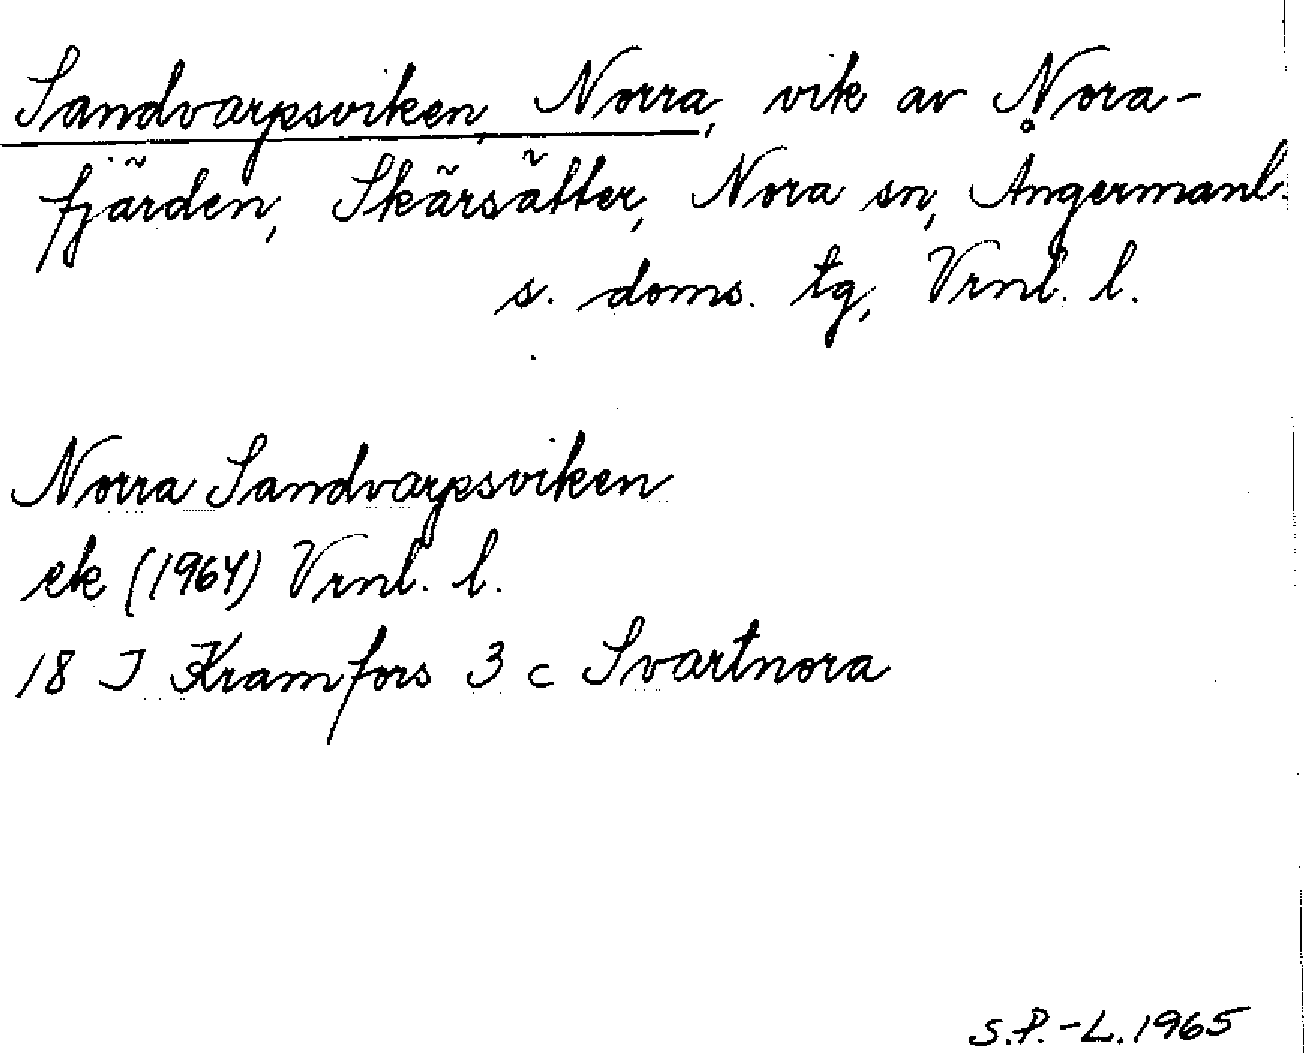 Sandvarpsviken, Norra, vik av Nora-
fjärden, Skärsätter, Nora sn, Ångermanl.
s. doms. tg, Vrnl. l.
Norra Sandvarpsviken
ek (1964) Vrnl. l.
18 J Kramfors 3 c Svartnora
S.P.-L. 1965